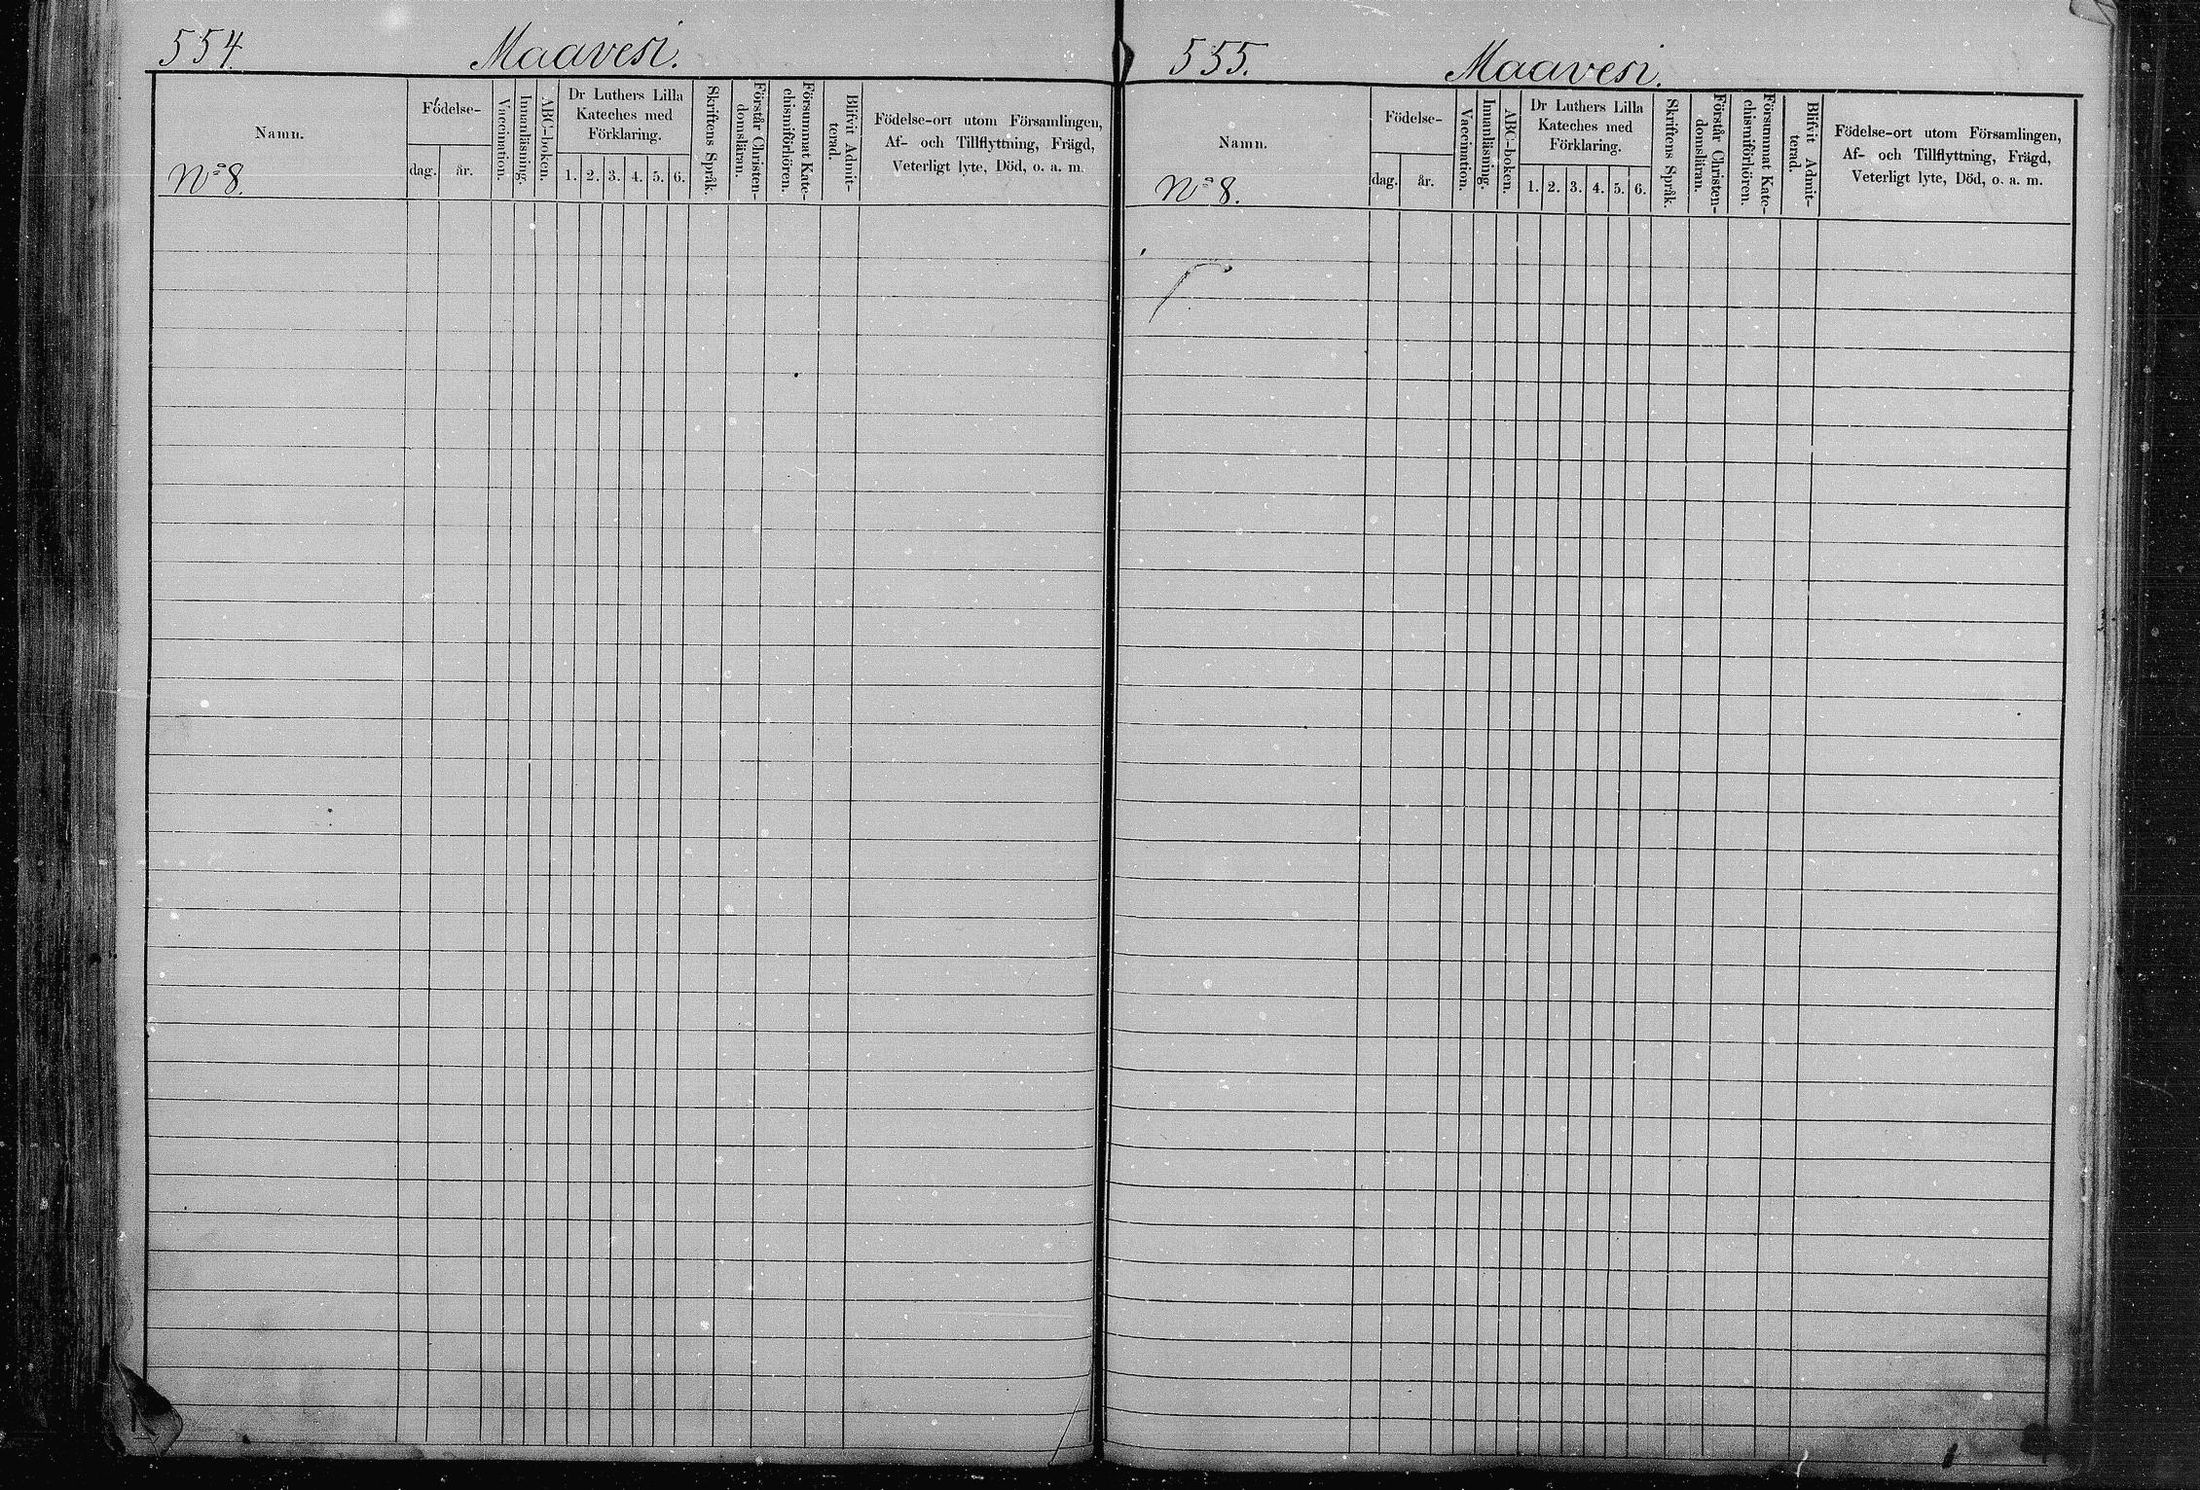 554. Maavesi.
Namn.
Födelse-
dag. år.
Vaccination.
Innanläsning.
ABC-boken.
Dr Luthers Lilla
Kateches med
Förklaring.
1. 2. 3. 4. 5. 6.
Skriftens Språk.
Förstår Christen-
domsläran.
Försummat Kate-
chismiförhören.
Blifvit Admit-
terad.
Födelse-ort utom Församlingen,
Af- och Tillflyttning, Frägd,
Veterligt lyte, Död, o. a. m.
No 8.
555. Maavesi.
Namn.
Födelse-
dag. år.
Vaccination.
Innanläsning.
ABC-boken.
Dr Luthers Lilla
Kateches med
Förklaring.
1. 2. 3. 4. 5. 6.
Skriftens Språk.
Förstår Christen-
domsläran.
Försummat Kate-
chismiförhören.
Blifvit Admit-
terad.
Födelse-ort utom Församlingen,
Af- och Tillflyttning, Frägd,
Veterligt lyte, Död, o. a. m.
No 8.